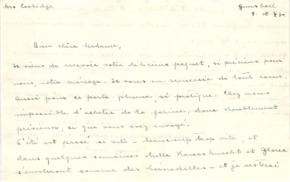 Mrs Coolidge
Bien chère Madame,
Je viens de recevoir votre délicieux paquet, si précieux pour
nous, votre ménage. Je vous en remercie de tout cœur.
Aussi pour ce porte plume, si pratique. Chez nous
impossible d'acheter de la farine, donc doublement
précieux, ce que vous avez envoyé.
L'été est passé si vite - trop vite, et
dans quelques semaines Mlle et
s'envoleront comme des hirondelles - et je resterai